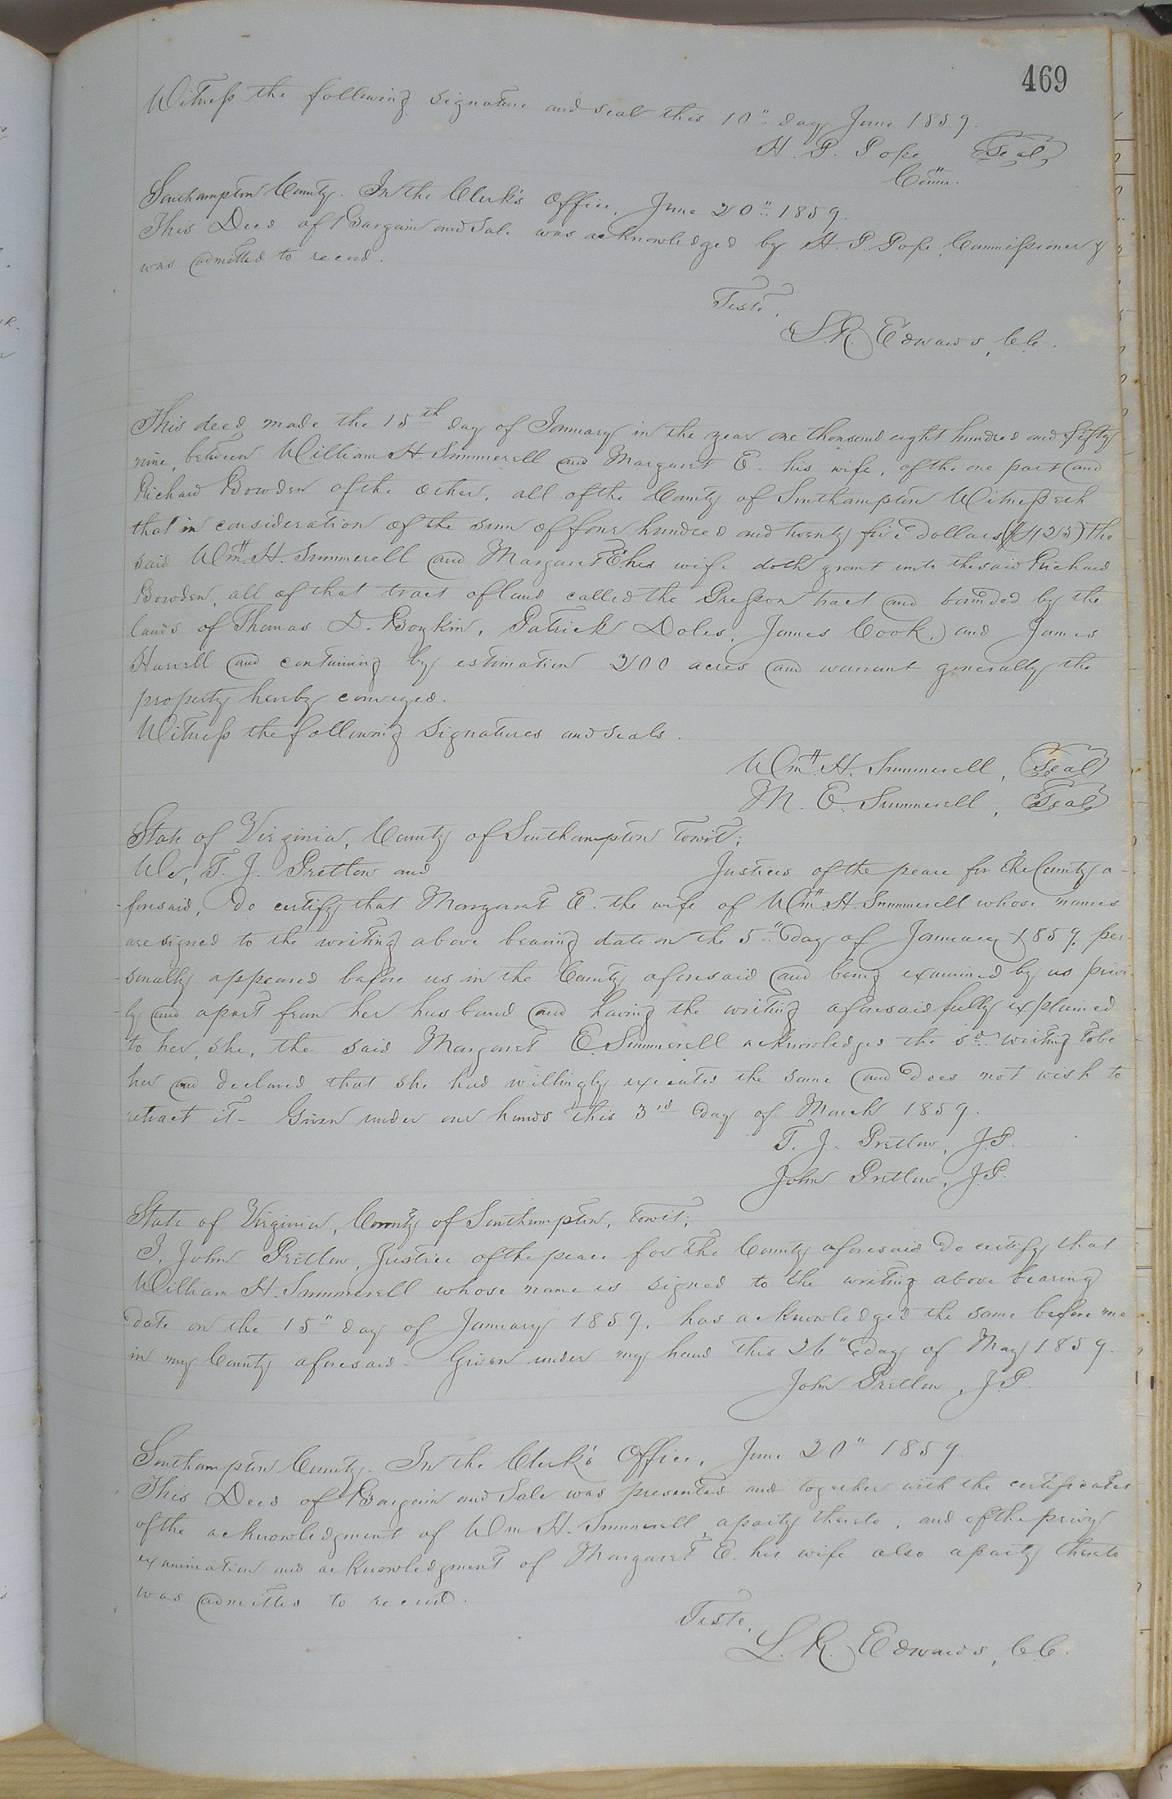 469
Witness the following signature and seal this 10" day June 1859.
H. P. Pope (Seal)
Comr.
Southampton County. In the Clerk's Office, June 20" 1859.
This Deed of Bargain and Sale was acknowledged by H. P. Pope, Commissioner &
was admitted to record.
Teste,
L. R. Edwards, C.C.
This deed made the 15th day of January in the year one thousand eight hundred and fifty
nine, between William H. Summerell and Margaret E. his wife, of the one part and
Richard Bowden of the other, all of the County of Southampton Witnesseth
that in consideration of the sum of four hundred and twenty five dollars ($425) the
said Wm. H. Summerell and Margaret E his wife doth grant unto the said Richard
Bowden, all of that tract of land called the Presson tract and bounded by the
lands of Thomas D. Boykin, Patrick Doles, James Cook, and James
Harrell and containing by estimation 200 acres and warrant generally the
property hereby conveyed.
Witness the following signatures and seals.
Wm. H. Summerell, (Seal)
M. E. Summerell, (Seal)
State of Virginia, County of Southampton towit;
We, T. J. Pretlow and Justices of the peace for the County a-
-foresaid, do certify that Margaret E. the wife of Wm. H. Summerell whose names
are signed to the writing above bearing date on the 5" day of January 1859, per-
-sonally appeared before us in the County aforesaid and being examined by us privi-
-ly and apart from her husband and having the writing aforesaid fully explained
to her, she, the said Margaret E. Summerell acknowledges the sd. writing to be
her and declared that she had willingly executed the same and does not wish to
retract it - Given under our hands this 3rd day of March 1859.
T. J. Pretlow, J.P.
John Pretlow, J.P.
State of Virginia, County of Southampton, towit;
I, John Pretlow, Justice of the peace for the County aforesaid do certify that
William H. Summerell whose name is signed to the writing above bearing
date on the 15" day of January 1859, has acknowledged the same before me
in my County aforesaid - Given under my hand this 26" day of May 1859.
John Pretlow, J.P.
Southampton County. In the Clerk's Office, June 20" 1859.
This Deed of Bargain and Sale was presented and together with the certificates
of the acknowledgment of Wm H. Summerell, a party thereto, and of the privy
examination and acknowledgment of Margaret E. his wife also a party thereto
was admitted to record.
Teste,
L. R. Edwards, C.C.